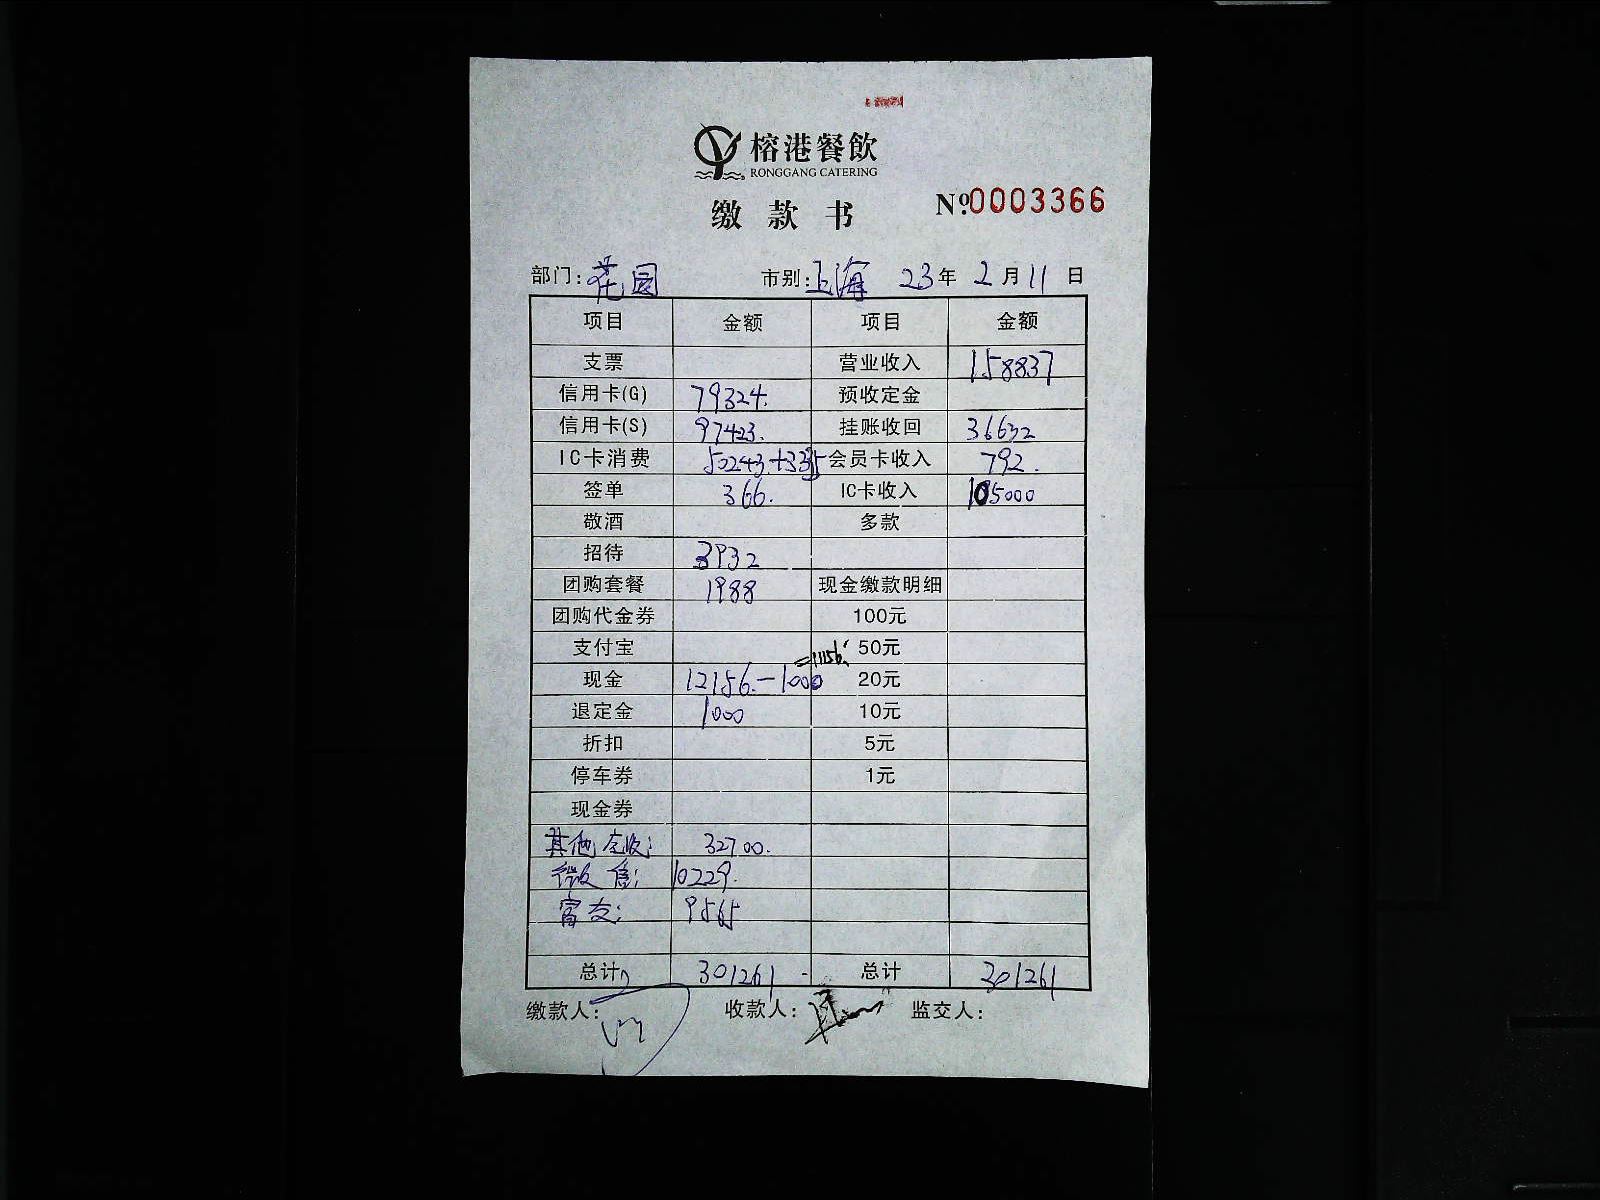 榕港餐飲
RONGGANG CATERING
缴款书
Nº 0003366
部门：花园 市别：上海 23年2月11日
项目 金额 项目 金额
支票 营业收入 158837
信用卡(G) 79324. 预收定金
信用卡(S) 97423. 挂账收回 36632
IC卡消费 50243.+335 会员卡收入 792.
签单 366. IC卡收入 105000
敬酒 多款
招待 3932
团购套餐 1988 现金缴款明细
团购代金券 100元
支付宝 50元
现金 12156.-1000 =11156. 20元
退定金 1000 10元
折扣 5元
停车券 1元
现金券
其他应收: 32700.
微信: 10229.
富友: 9565
总计 301261 总计 301261
缴款人： 收款人： 监交人：